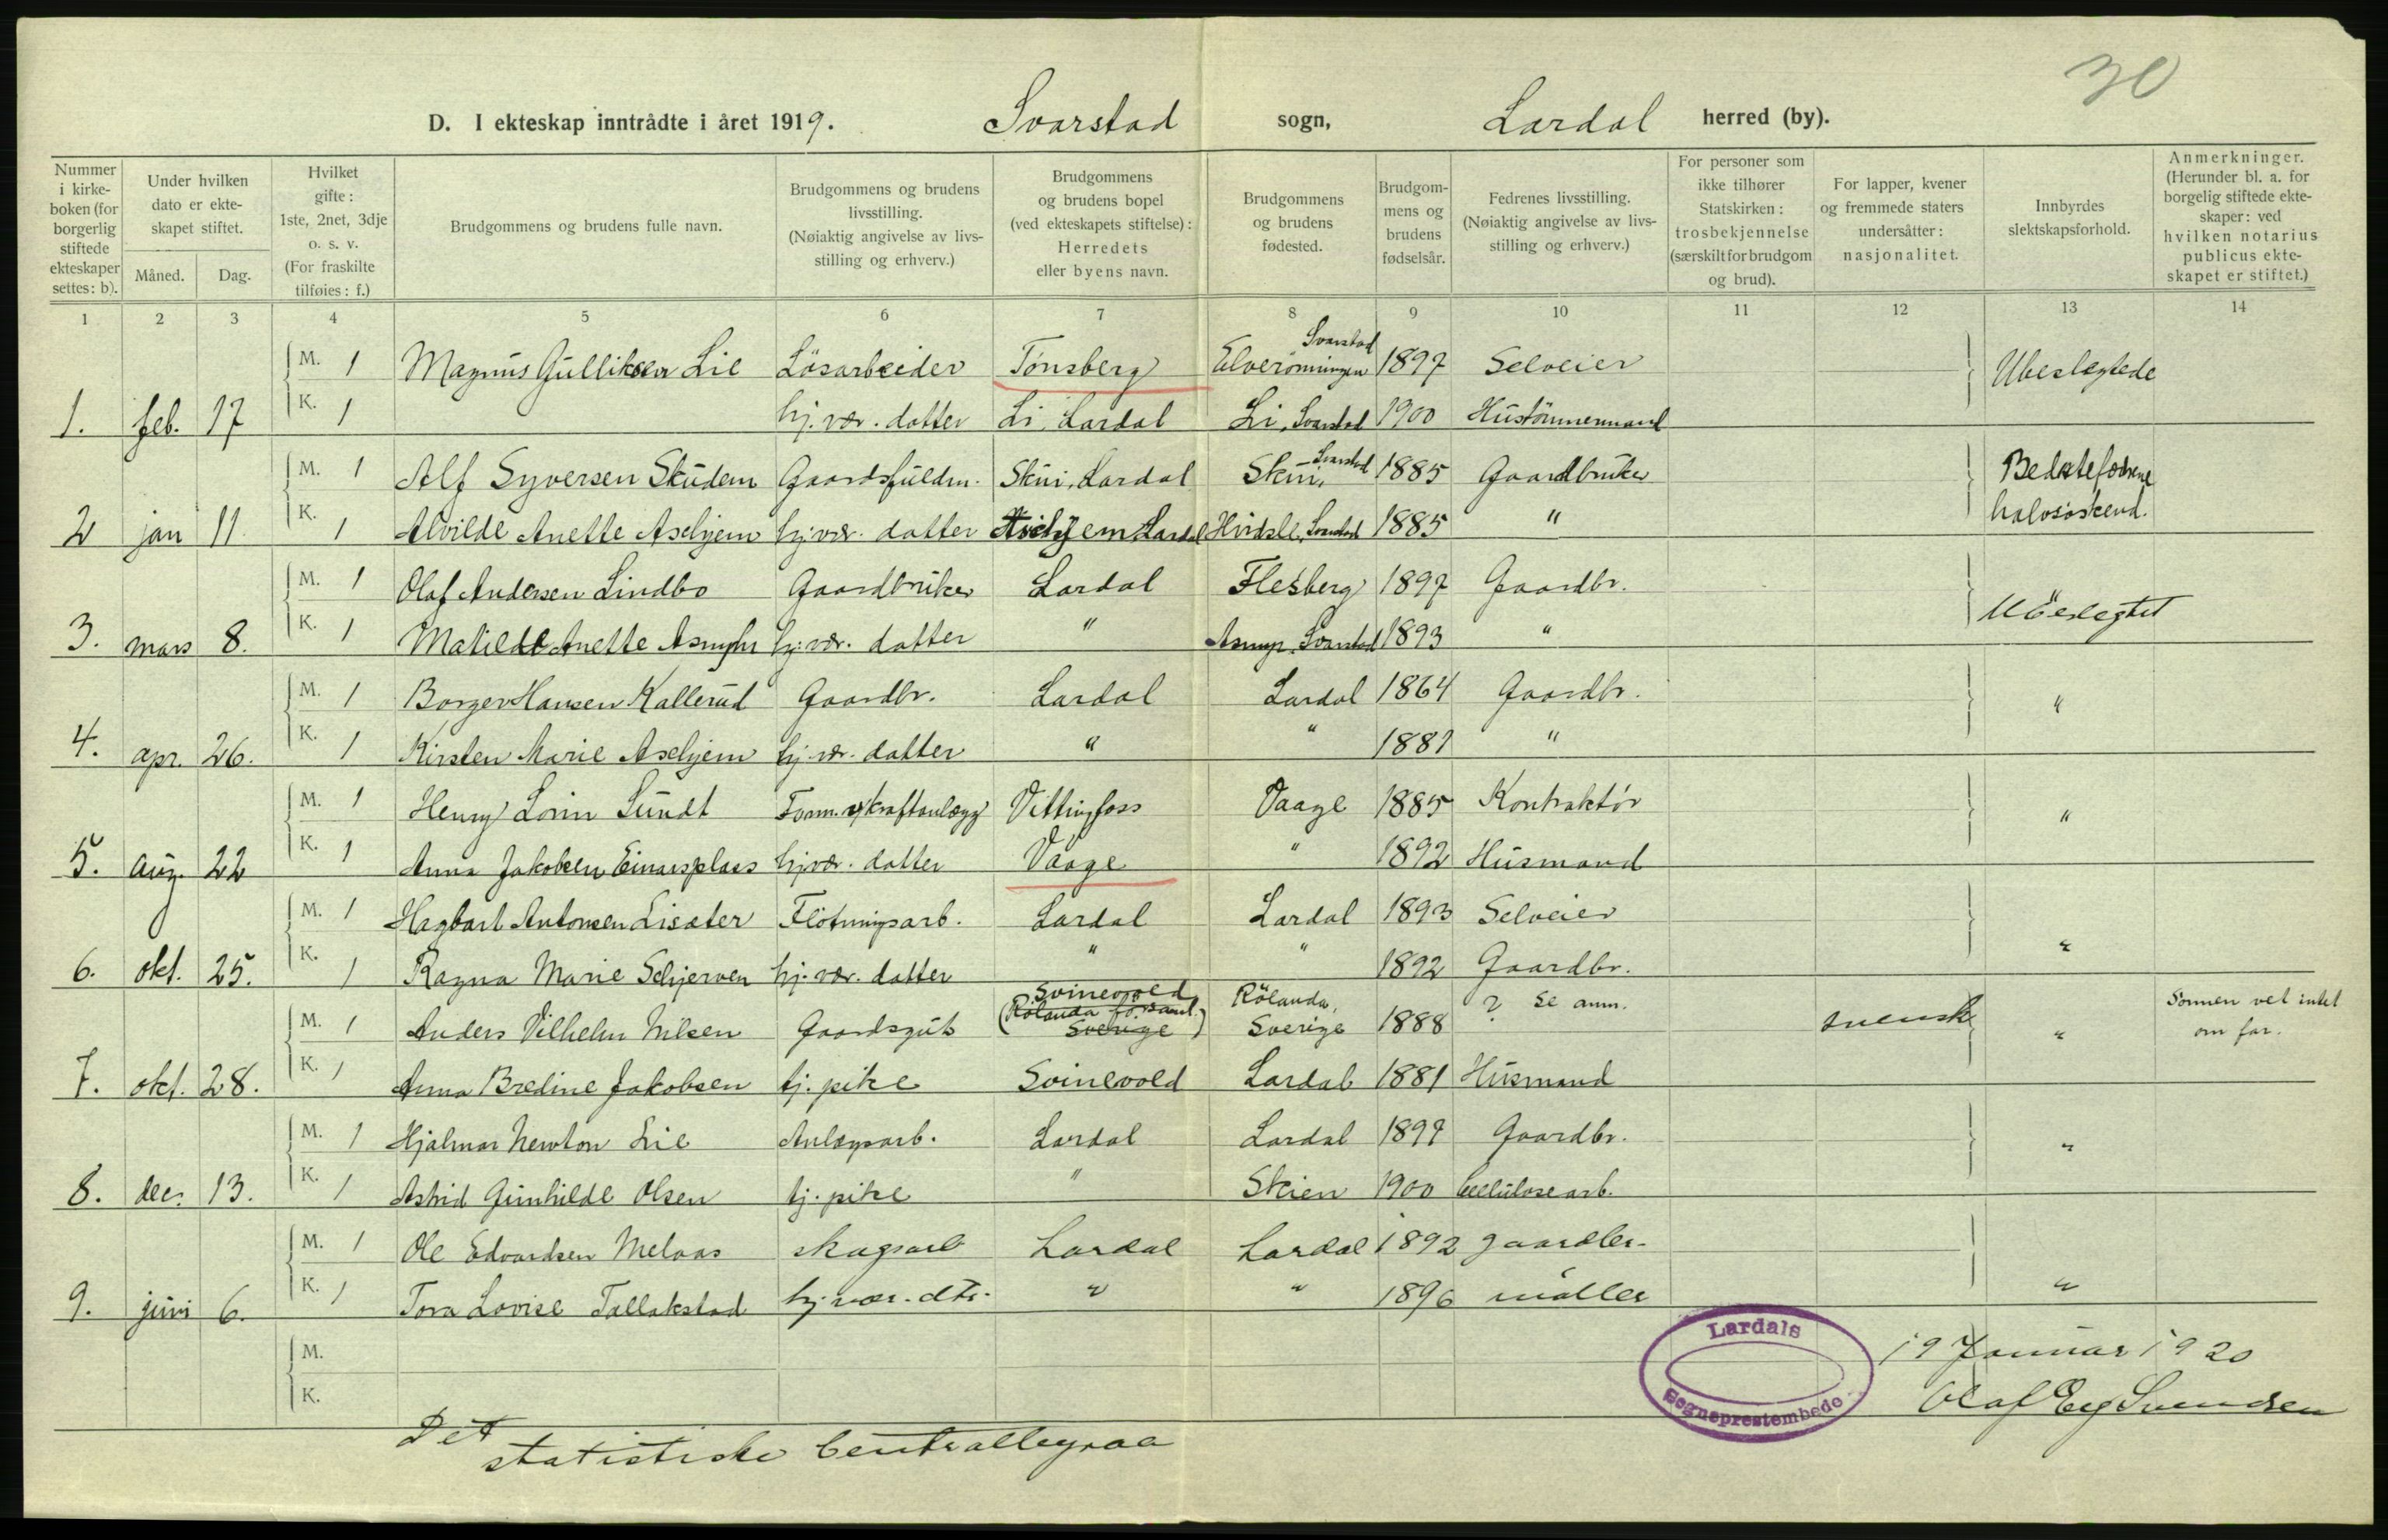 30
D. I ekteskap inntrådte i året 1919. Svarstad sogn, Lardal herred (by).
Nummer i kirke-boken (for borgerlig stiftede ekteskaper settes: b).
Under hvilken dato er ekte-skapet stiftet.
Måned. Dag.
Hvilket gifte: 1ste, 2net, 3dje o. s. v. (For fraskilte tilføies: f.)
Brudgommens og brudens fulle navn.
Brudgommens og brudens livsstilling. (Nøiaktig angivelse av livs-stilling og erhverv.)
Brudgommens og brudens bopel (ved ekteskapets stiftelse): Herredets eller byens navn.
Brudgommens og brudens fødested.
Brudgom-mens og brudens fødselsår.
Fedrenes livsstilling. (Nøiaktig angivelse av livs-stilling og erhverv.)
For personer som ikke tilhører Statskirken: trosbekjennelse (særskilt for brudgom og brud).
For lapper, kvener og fremmede staters undersåtter: nasjonalitet.
Innbyrdes slektskapsforhold.
Anmerkninger. (Herunder bl. a. for borgelig stiftede ekte-skaper: ved hvilken notarius publicus ekte-skapet er stiftet.)
1 2 3 4 5 6 7 8 9 10 11 12 13 14
M. 1 Magnus Gulliksen Lie Lösarbeider Tønsberg Elverønningen Svarstad 1897 Selveier Ubeslegtede
1. feb. 17 K. 1 hj. vær. datter Li, Lardal Li, Svarstad 1900 Hustömmermand
M. 1 Alf Syversen Skudem Gaardsfuldm. Skui, Lardal Skui, Svarstad 1885 Gaardbruker Bedstefædrene
2 jan 11 K. 1 Alvilde Anette Aselyem hj. vær. datter Aselyem Lardal Hvidsle, Svarstad 1885 " halvsöskend.
M. 1 Olaf Andersen Lindbo Gaardbruker Lardal Flesberg 1897 Gaardbr. Ubeslegtet
3. mars 8. K. 1 Matilde Anette Asmyhr hj. vær. datter " Asmyr, Svarstad 1893 "
M. 1 Borger Hansen Kallerud Gaardbr. Lardal Lardal 1864 Gaardbr. "
4. apr. 26. K. 1 Kirsten Marie Aselyem hj. vær. datter " " 1881 "
M. 1 Henry Lorin Sundt Form. v/ kraftanlægg Vittingfoss Vaage 1885 Kontraktör "
5. aug. 22 K. 1 Anna Jakobsen Einarsplass hj. vær. datter Vaage " 1892 Husmand
M. 1 Hagbart Antonsen Lisæter Flötningsarb. Lardal Lardal 1893 Selveier "
6. okt. 25. K. 1 Ragna Marie Schjerven hj. vær. datter " " 1892 Gaardbr.
M. 1 Anders Vilhelm Nilsen Gaardsgut Svinevold (Rölanda Sverige) Rölanda, Sverige 1888 ? Se anm. svensk " Sönnen vet intet om far.
7. okt. 28. K. 1 Anna Bredine Jakobsen tj. pike Svinevold Lardal 1881 Husmand
M. 1 Hjalmar Newton Lie Anlægsarb. Lardal Lardal 1897 Gaardbr. "
8. dec. 13. K. 1 Astrid Gunhilde Olsen tj. pike " Skien 1900 Cellulosearb.
M. 1 Ole Edvardsen Melaas skogsarb Lardal Lardal 1892 gaardbr. "
9. juni 6. K. 1 Tora Lovise Tallakstad hj. vær. dtr. " " 1896 møller
M.
K.
Lardals Sogneprestembede
19 Januar 1920
Olaf Eeg Svendsen
Det statistiske Centralbyraa